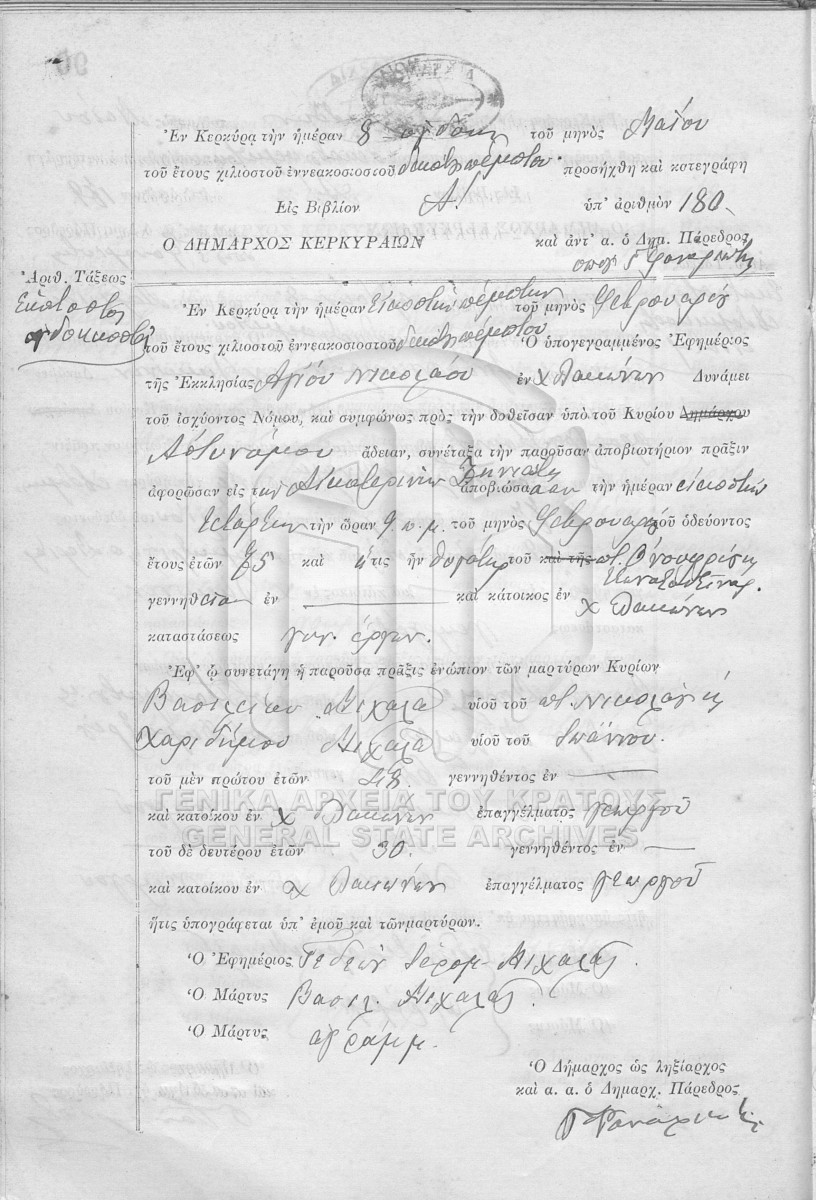 ΝΟΜΑΡΧΙΑ
Ἐν Κερκύρᾳ τὴν ἡμέραν 8 ὀγδόην τοῦ μηνὸς Μαΐου
τοῦ ἔτους χιλιοστοῦ ἐννεακοσιοστοῦ δεκάτου πέμπτου προσήχθη καὶ κατεγράφη
Εἰς Βιβλίον Α! ὑπ' ἀριθμὸν 180
Ο ΔΗΜΑΡΧΟΣ ΚΕΡΚΥΡΑΙΩΝ καὶ ἀντ' α. ὁ Δημ. Πάρεδρος
Ἀριθ. Τάξεως
Ἑκατοστὴ
ὀγδοηκοστὴ
Ἐν Κερκύρᾳ τὴν ἡμέραν Εἰκοστὴν πέμπτην τοῦ μηνὸς Φεβρουαρίου
τοῦ ἔτους χιλιοστοῦ ἐννεακοσιοστοῦ δεκάτου πέμπτου Ὁ ὑπογεγραμμένος Ἐφημέριος
τῆς Ἐκκλησίας Ἁγίου Νικολάου ἐν χ Λακώνων Δυνάμει
τοῦ ἰσχύοντος Νόμου, καὶ συμφώνως πρὸς τὴν δοθεῖσαν ὑπὸ τοῦ Κυρίου Δημάρχου
Ἀστυνόμου ἄδειαν, συνέταξα τὴν παροῦσαν ἀποβιωτήριον πρᾶξιν
ἀφορῶσαν εἰς τὴν Αἰκατερίνην ἀποβιώσασαν τὴν ἡμέραν εἰκοστὴν
τετάρτην τὴν ὥραν 9 π.μ. τοῦ μηνὸς Φεβρουαρίου τοῦ ὁδεύοντος
ἔτους ἐτῶν 75 καὶ ἥτις ἦν θυγάτηρ τοῦ καὶ τῆς
γεννηθεῖσα ἐν καὶ κάτοικος ἐν χ Λακώνων
καταστάσεως
Ἐφ' ᾧ συνετάγη ἡ παροῦσα πρᾶξις ἐνώπιον τῶν μαρτύρων Κυρίων
Βασιλείου Μιχαλᾶ υἱοῦ τοῦ
Χαριδήμου Μιχαλᾶ υἱοῦ τοῦ Ἰωάννου.
τοῦ μὲν πρώτου ἐτῶν 48 γεννηθέντος ἐν
ΓΕΝΙΚΑ ΑΡΧΕΙΑ ΤΟΥ ΚΡΑΤΟΥΣ
καὶ κατοίκου ἐν χ Λακώνων ἐπαγγέλματος γεωργοῦ
GENERAL STATE ARCHIVES
τοῦ δὲ δευτέρου ἐτῶν 30. γεννηθέντος ἐν
καὶ κατοίκου ἐν χ Λακώνων ἐπαγγέλματος γεωργοῦ
ἥτις ὑπογράφεται ὑπ' ἐμοῦ καὶ τῶνμαρτύρων.
Ὁ Ἐφημέριος Γεδεὼν Ἱερομ. Μιχαλᾶς.
Ὁ Μάρτυς Βασιλ. Μιχαλᾶς.
Ὁ Μάρτυς ἀγράμμ.
Ὁ Δήμαρχος ὡς ληξίαρχος
καὶ α. α. ὁ Δημαρχ. Πάρεδρος